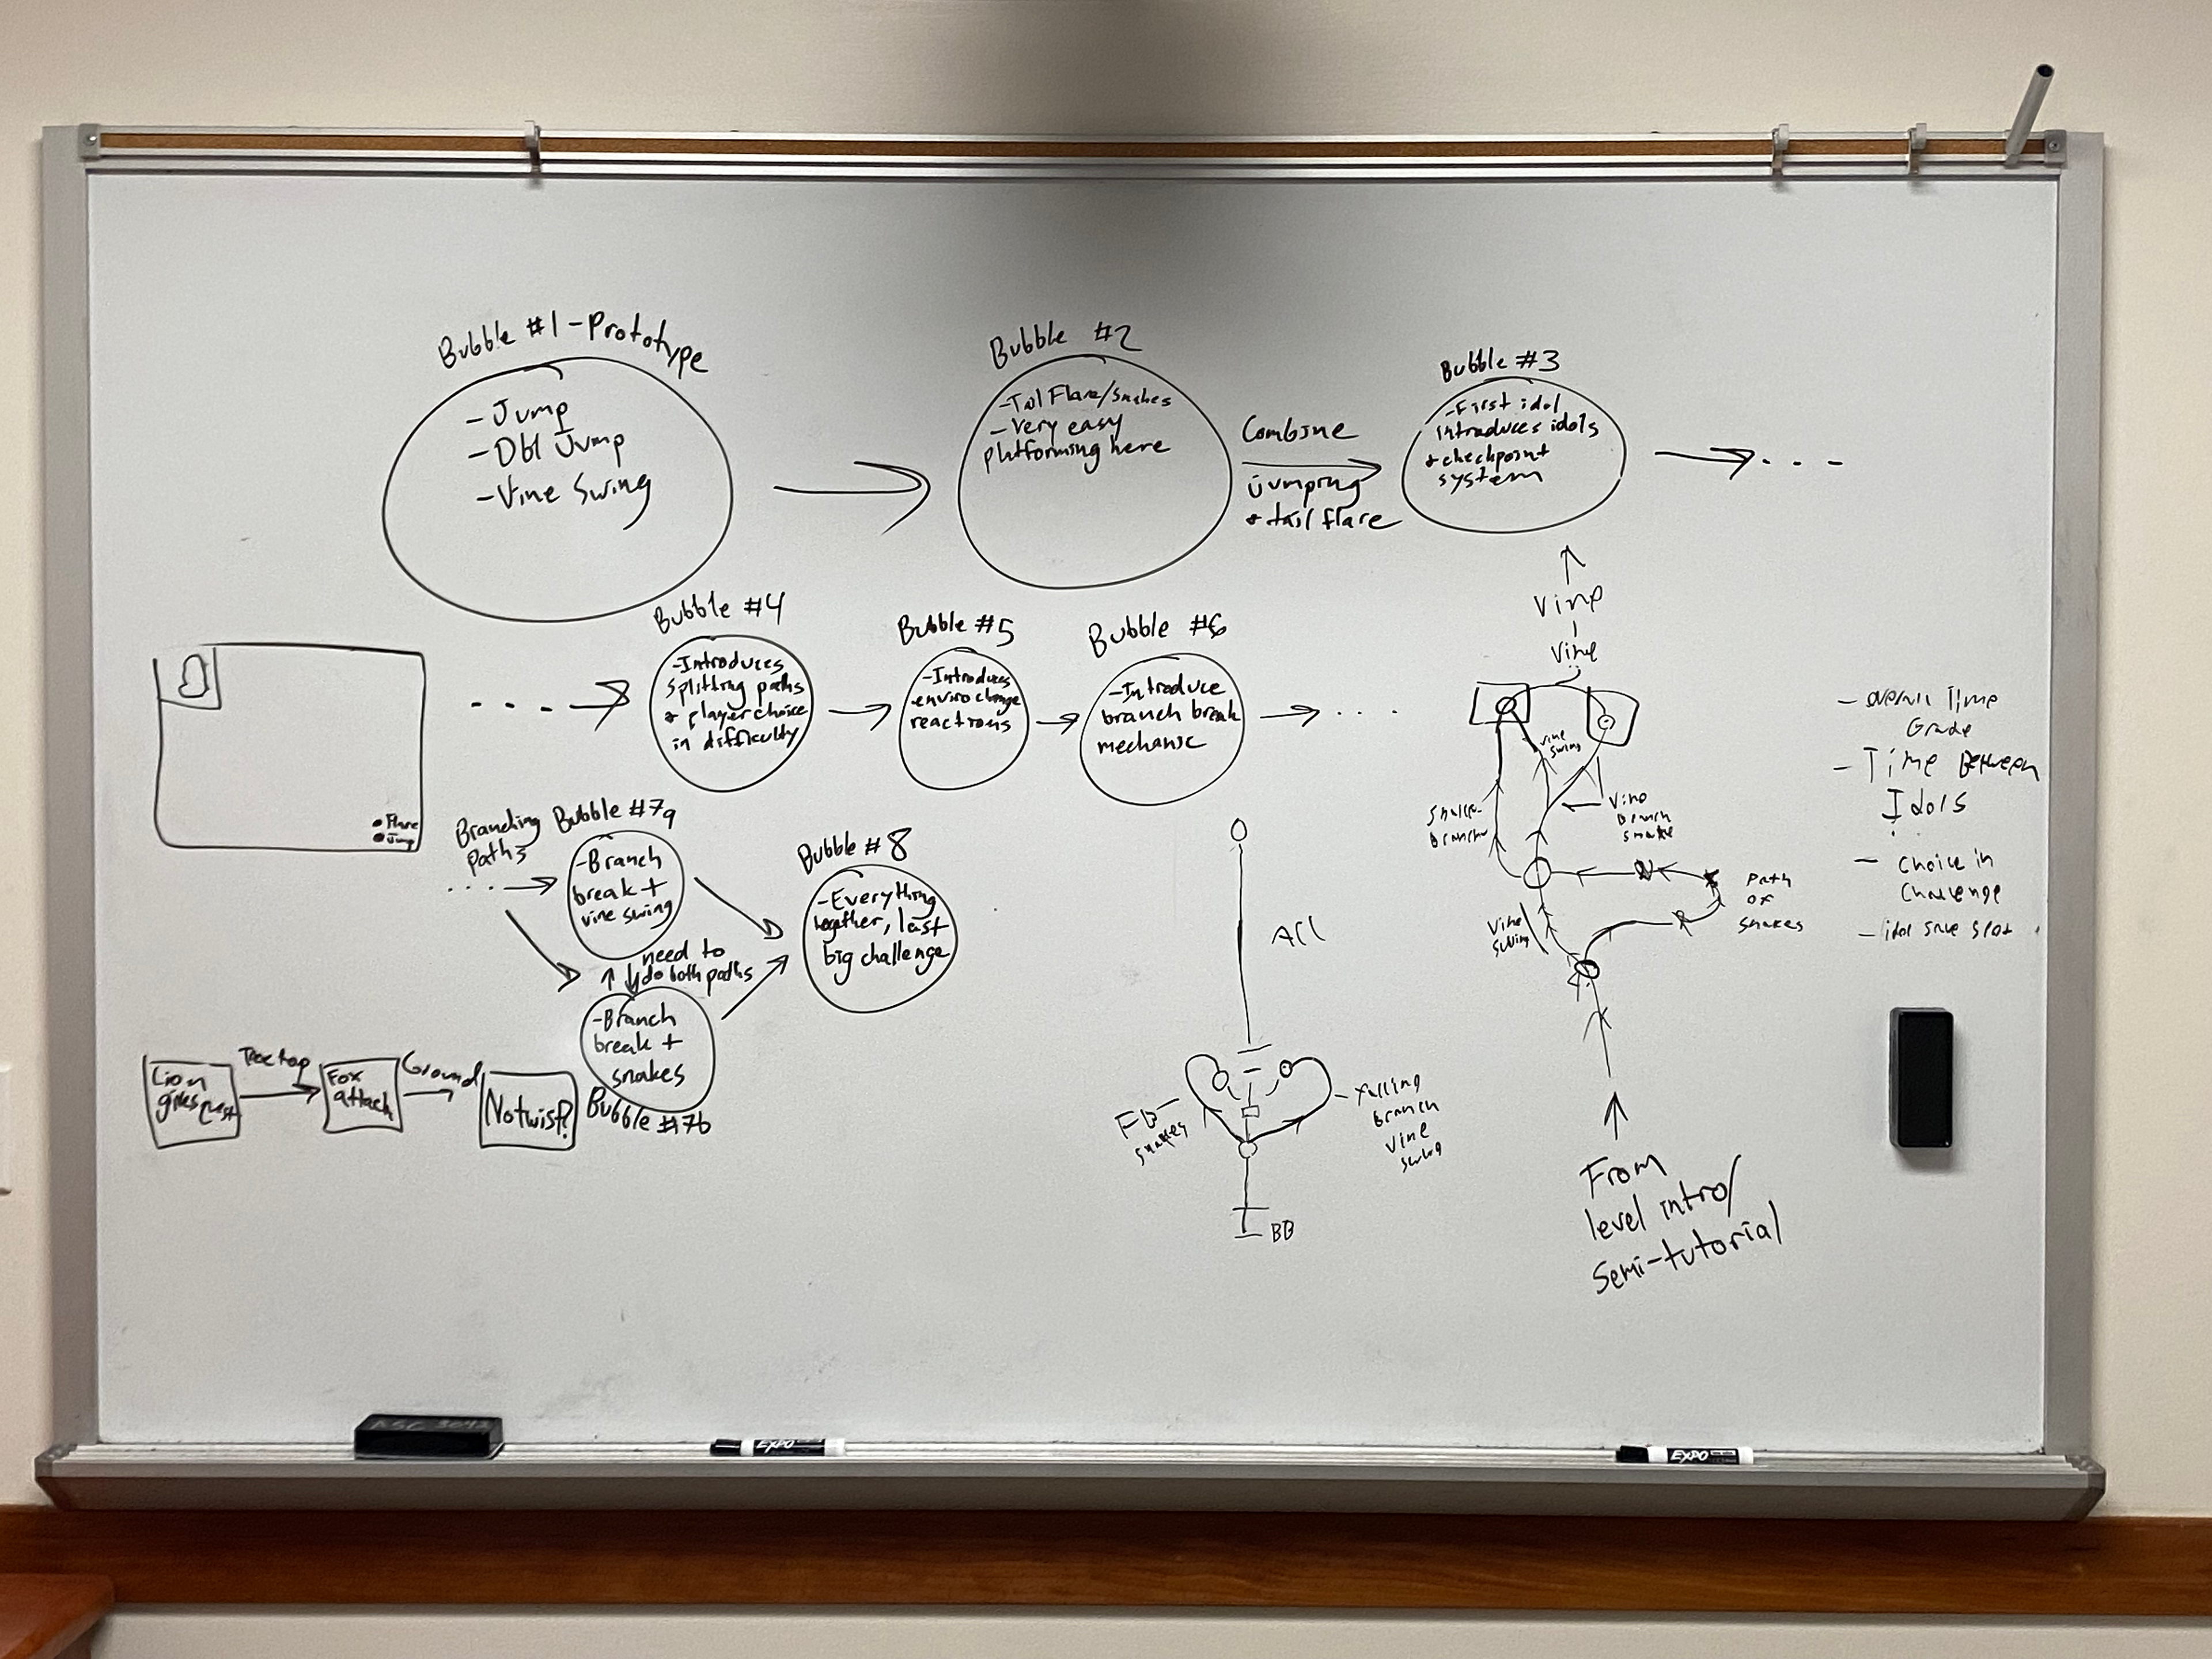 Bubble #1 - Prototype
- Jump
- Dbl Jump
- Vine Swing
Bubble #2
- Tail Flare/Snakes
- Very easy
platforming here
Combine
jumping
+ tail flare
Bubble #3
- First idol
introduces idols
+ checkpoint
system
Bubble #4
- Introduces
splitting paths
+ player choice
in difficulty
Bubble #5
- Introduces
enviro change
reactions
Bubble #6
- Introduce
branch break
mechanic
Flare
Jump
Branching
paths
Bubble #7a
- Branch
break +
vine swing
need to
do both paths
- Branch
break +
snakes
Bubble #7b
Bubble #8
- Everything
together, last
big challenge
Lion
gives quest
Treetop
Fox
attack
Ground
No twist?
All
FB -
snakes
- Falling
Branch
Vine
swing
BB
Vine
Vine
Vine
swing
Vine
branch
snake
Vine
swing
Path
of
snakes
From
level intro/
semi-tutorial
- Overall Time
Grade
- Time Between
Idols
- Choice in
Challenge
- idol save spot
EXPO
EXPO